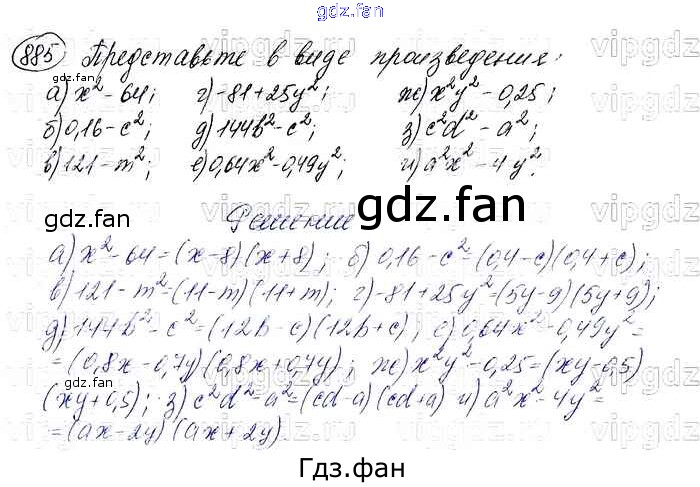 gdz.fan
885 Представьте в виде произведения:
а) x² - 64; г) -81 + 25y²; ж) x²y² - 0,25;
б) 0,16 - c²; д) 144b² - c²; з) c²d² - a²;
в) 121 - m²; е) 0,64x² - 0,49y²; и) a²x² - 4y².
gdz.fan
gdz.fan
Решение
а) x² - 64 = (x - 8)(x + 8); б) 0,16 - c² = (0,4 - c)(0,4 + c);
в) 121 - m² = (11 - m)(11 + m); г) -81 + 25y² = (5y - 9)(5y + 9);
д) 144b² - c² = (12b - c)(12b + c); е) 0,64x² - 0,49y² =
= (0,8x - 0,7y)(0,8x + 0,7y); ж) x²y² - 0,25 = (xy - 0,5)
(xy + 0,5); з) c²d² = a² = (cd - a)(cd + a) и) a²x² - 4y² =
= (ax - 2y)(ax + 2y).
gdz.fan
gdz.fan
Гдз.фан